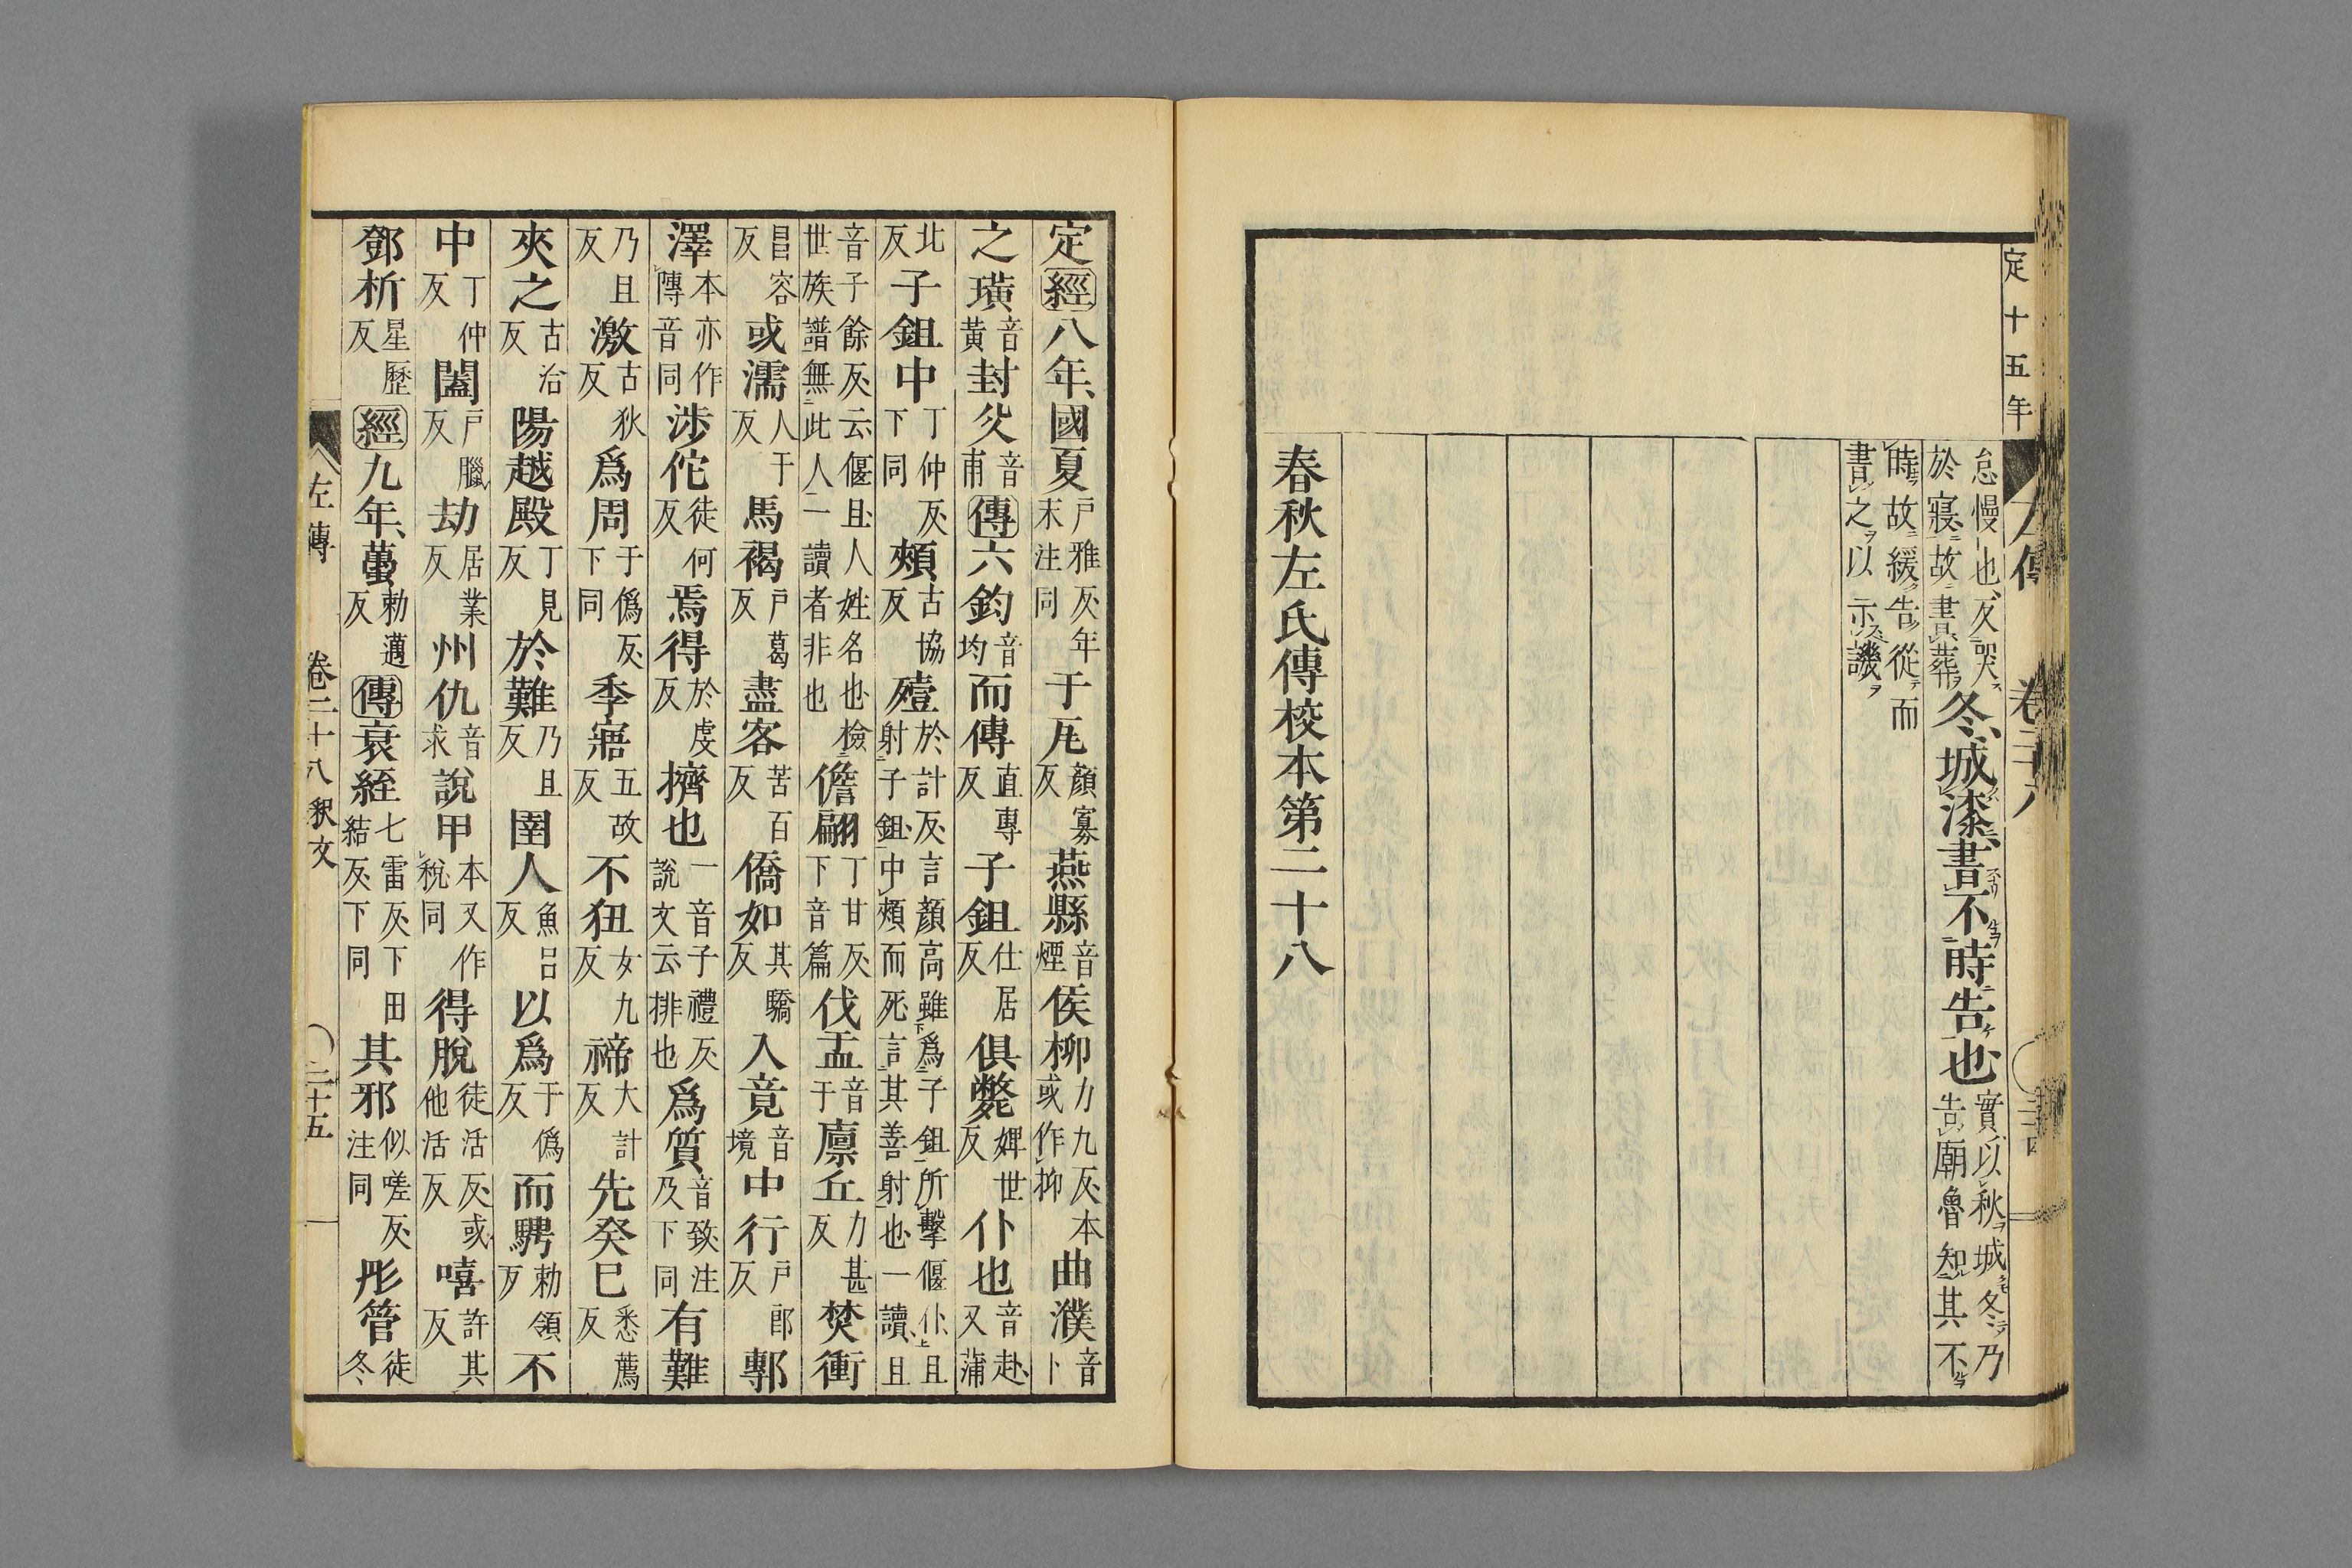 定十五年
怠慢也反哭
於寢故書葬冬城漆書不時告也實以秋城冬乃
告廟魯知其不
時故緩告從而
書之以示譏
春秋左氏傳校本第二十八
定經八年國夏戶雅反年末注同于瓦顏寡反燕縣音煙侯柳力九反本或作抑曲濮音卜
之璜音黃封父音甫傳六鈞音均而傳直專反子鉏仕居反俱斃婢世反仆也音赴又蒲
北反子鉏中丁仲反下同頰古協反殪於計反言顏高雖爲子鉏所擊偃仆且射子鉏中頰而死言其善射也一讀且
音子餘反云偃且人姓名也檢世族譜無此人一讀者非也儋翩丁甘反下音篇伐盂音于廩丘力甚反焚衝
昌容反或濡人于反馬褐戶葛反盡客苦百反僑如其驕反入竟音境中行戶郎反鄟
澤本亦作傳音同涉佗徒何反焉得於虔反擠也一音子禮反說文云排也爲質音致注及下同有難
乃且反激古狄反爲周于僞反下同季寤五故反不狃女九反禘大計反先癸巳悉薦反
夾之古洽反陽越殿丁見反於難乃且反圉人魚呂反以爲于僞反而騁勅領反不
中丁仲反闔戶臘反劫居業反州仇音求說甲本又作稅同得脫徒活反或他活反嘻許其反
鄧析星歷反經九年蠆勅邁反傳衰絰七雷反下田結反下同其邪似嗟反注同彤管徒冬
左傳 卷二十八釈文 二十五